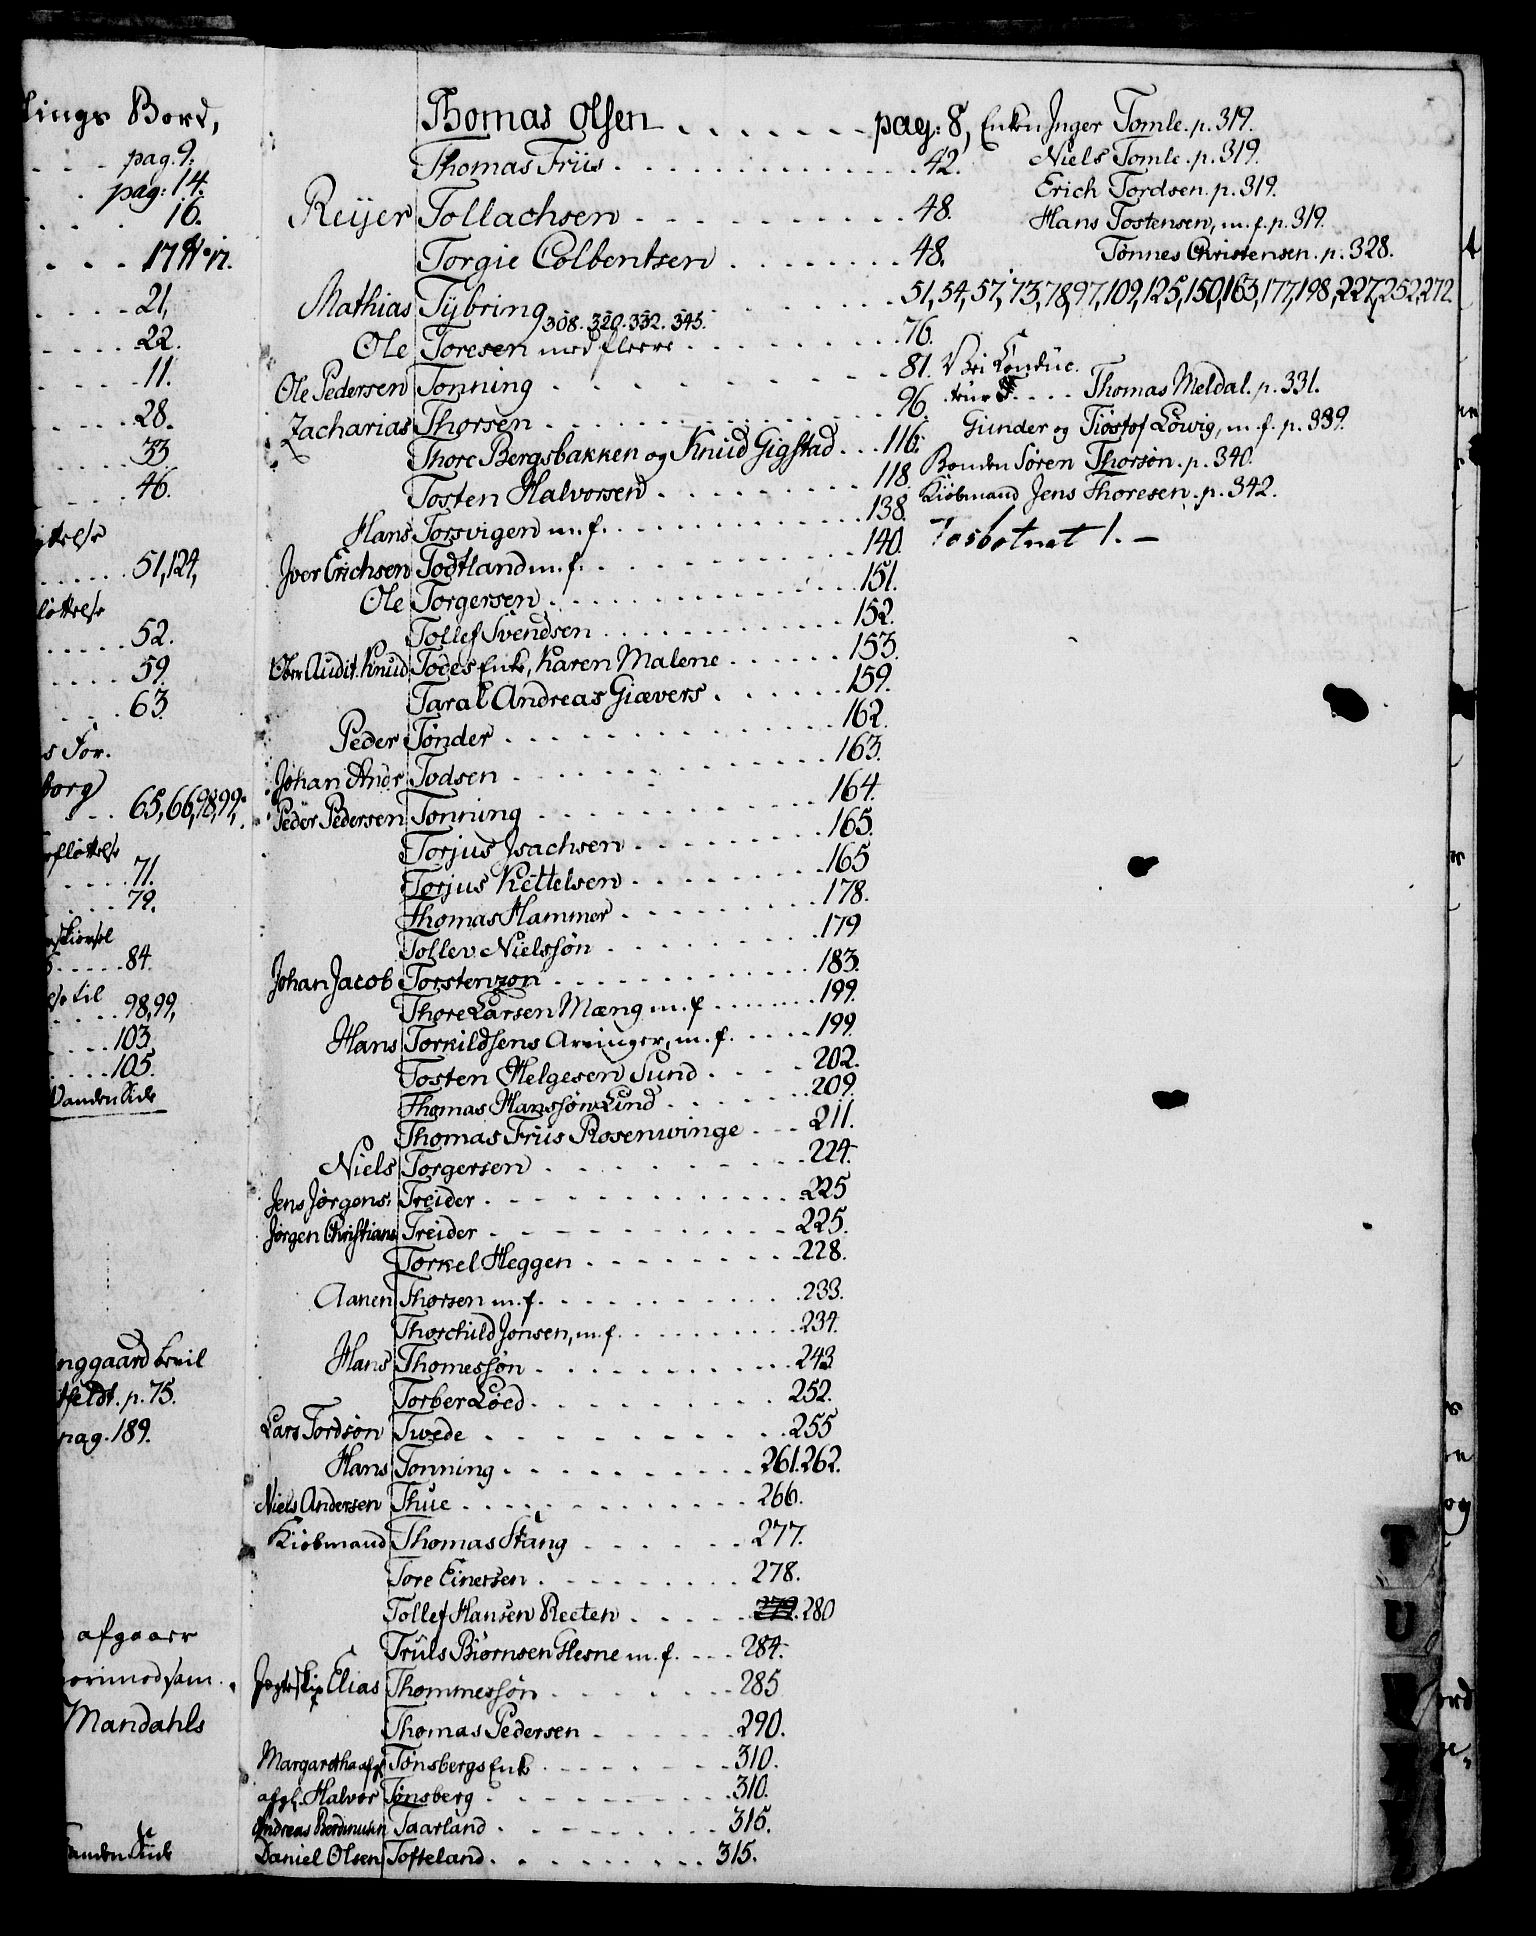 lings Bord,
pag. 9.
pag: 14.
16.
17
21,
22.
11.
28.
33
46.
51, 124,
52.
59.
63
s For.
borg
65, 66, 98, 99,
71.
79.
84.
til
98, 99,
103
105.
Vanden Side
nggaard bevil
feldt. p. 75.
pag. 189.
afgaaer
Mandahls
Thomas Olsen . . . . . . . pag: 8,
Thomas Friis . . . . . . . 42.
Reijer Tollachsen . . . . . . . 48.
Torgie Colbentsen . . . . . . . 48.
Mathias Tÿbring 308. 320. 332. 345. . . . . 51, 54, 57, 73, 78, 97, 109, 125, 150, 163, 177, 198, 227, 252, 272.
Ole Toresen med fleere . . . . . . . 76.
Ole Pedersen Tonning . . . . . . . 81.
Zacharias Thorsen . . . . . . . 96.
Thore Bergsbakken og Knud Gigstad . . . 116.
Tosten Halvorsen . . . . . . . 118.
Hans Torsvigen m. f. . . . . . . . 138.
Iver Erichsen Todtland m. f. . . . . . . . 140.
Ole Torgersen . . . . . . . 151.
Tollef Svendsen . . . . . . . 152.
Ober Audit. Knud Todes Enke, Karen Malene . . . . . . 153.
Taral Andreas Giævers . . . . . . 159.
Peder Tønder . . . . . . . 162.
Johan Andr Todsen . . . . . . . 163.
Peder Pedersen Tonning . . . . . . . 164.
Torjus Isachsen . . . . . . . 165.
Torjus Kettelsen . . . . . . . 165
Thomas Hammer . . . . . . . 178.
Tollev Nielssøn . . . . . . . 179
Johan Jacob Torstenson . . . . . . . 183.
Thore Larsen Mæng m. f . . . . . . . 199.
Hans Torkildsens Arvinger, m. f. . . . . . 199.
Tosten Helgesen Sund . . . . . 202.
Thomas Hanssøn Lund . . . . . . 209.
Thomas Friis Rosenwinge . . . 211.
Niels Torgersen . . . . . . . 224.
Jens Jørgens: Treider . . . . . . . 225
Jørgen Christians Treider . . . . . . . 225.
Torkel Heggen . . . . . . . 228.
Aanen Thorsen m. f. . . . . . . . 233.
Thorchild Jonsen, m. f. . . . . . . . 234.
Hans Thomessøn . . . . . . . 243
Torber Løed . . . . . . . 252.
Lars Tordsøn Twede . . . . . . . 255
Hans Tonning . . . . . . . 261. 262.
Niels Andersen Thue . . . . . . . 266.
Kiøbmand Thomas Stang . . . . . . 277.
Tore Einersen . . . . . . . 278.
Tollef Hansen Reeten . . . . . 279. 280
Truls Biørnsen Hesne m. f. . . . 284.
Elias Thommessøn . . . . . . . 285
Thomas Pedersen . . . . . . 290.
Margaretha afg. Tønsbergs Enke . . . . . . . 310.
afgl. Halvor Tønsberg . . . . . . . 310.
Andreas Taarland . . . . . . . 315.
Daniel Olsen Tofteland . . . . . . . 315.
Enken Inger Tomle. p. 319.
Niels Tomle. p. 319.
Erich Tordsen. p. 319.
Hans Tostensen, m. f. p. 319.
Tønnes Christensen. p. 328.
Thomas Meldal. p. 331.
Gunder og Tiøstof Lowig, m. f. p. 339.
Bonden Søren Thorsøn. p. 340.
Kiøbmand Jens Thoresen. p. 342.
Tosbotnet 1. —
T
U